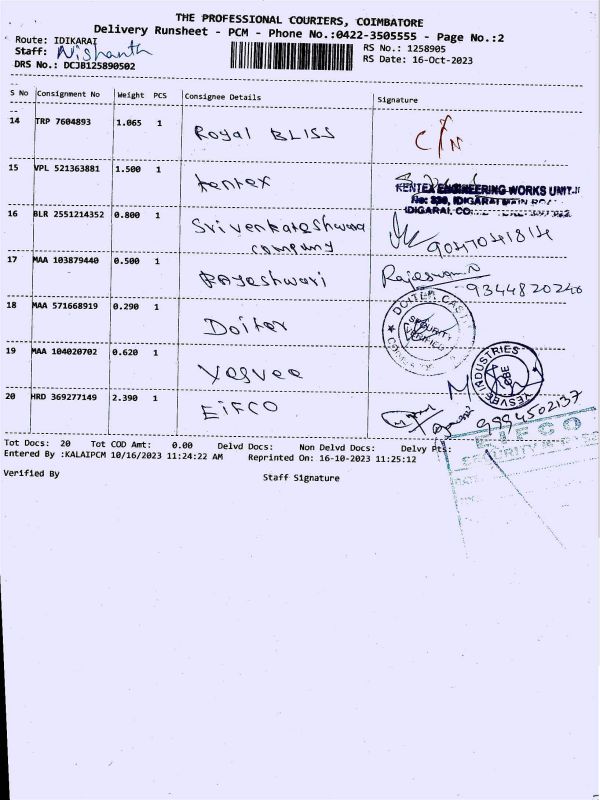 THE PROFESSIONAL COURIERS, COIMBATORE
Delivery Runsheet - PCM - Phone No.:0422-3505555 - Page No.:2
Route: IDIKARAI
RS No.: 1258905
Staff: Nishanth
RS Date: 16-Oct-2023
DRS No.: DCJB125890502
S No Consignment No Weight PCS Consignee Details Signature
14 TRP 7604893 1.065 1 Royal BLISS
15 VPL 521363881 1.500 1 kentex
KENTEX ENGINEERING WORKS UNIT-II
No: 330, IDIGARAI MAIN ROAD
IDIGARAI, CO
16 BLR 2551214352 0.800 1 Sri venkateshwara
company
9047041814
17 MAA 103879440 0.500 1 RAjeshwari Rajeswari
9344820240
18 MAA 571668919 0.290 1 Doiter
DOITER CAST
SECURITY
VERIFIED
19 MAA 104020702 0.620 1 Yesvee
YESVBE INDUSTRIES
20 HRD 369277149 2.390 1 EIFCO
9994502137
EIFCO
SECURITY
Tot Docs: 20 Tot COD Amt: 0.00 Delvd Docs: Non Delvd Docs: Delvy Pts:
Entered By :KALAIPCM 10/16/2023 11:24:22 AM Reprinted On: 16-10-2023 11:25:12
Verified By Staff Signature